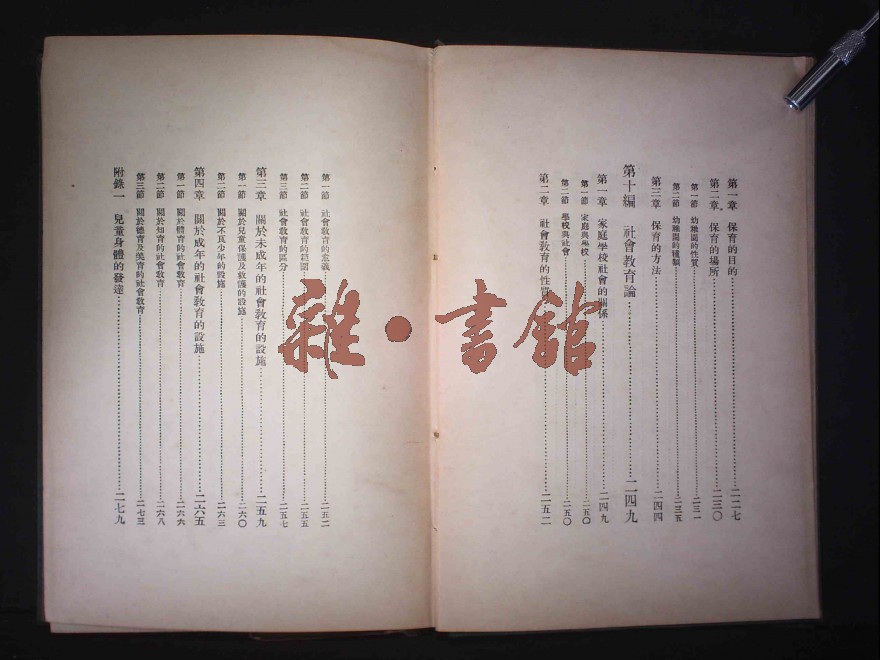 第一章　保育的目的……二二七
第二章　保育的場所……二三〇
第一節　幼稚園的性質……二三一
第二節　幼稚園的種類……二三五
第三章　保育的方法……二四四
第十編　社會教育論……二四九
第一章　家庭學校社會的關係……二四九
第一節　家庭與學校……二五〇
第二節　學校與社會……二五〇
第二章　社會教育的性質……二五二
第一節　社會教育的意義……二五二
第二節　社會教育的範圍……二五五
第三節　社會教育的區分……二五七
第三章　關於未成年的社會教育的設施……二五九
第一節　關於兒童保護及救護的設施……二六〇
第二節　關於不良少年的設施……二六三
第四章　關於成年的社會教育的設施……二六五
第一節　關於體育的社會教育……二六六
第二節　關於知育的社會教育……二六八
第三節　關於德育及美育的社會教育……二七三
附錄一　兒童身體的發達……二七九
雜·書館